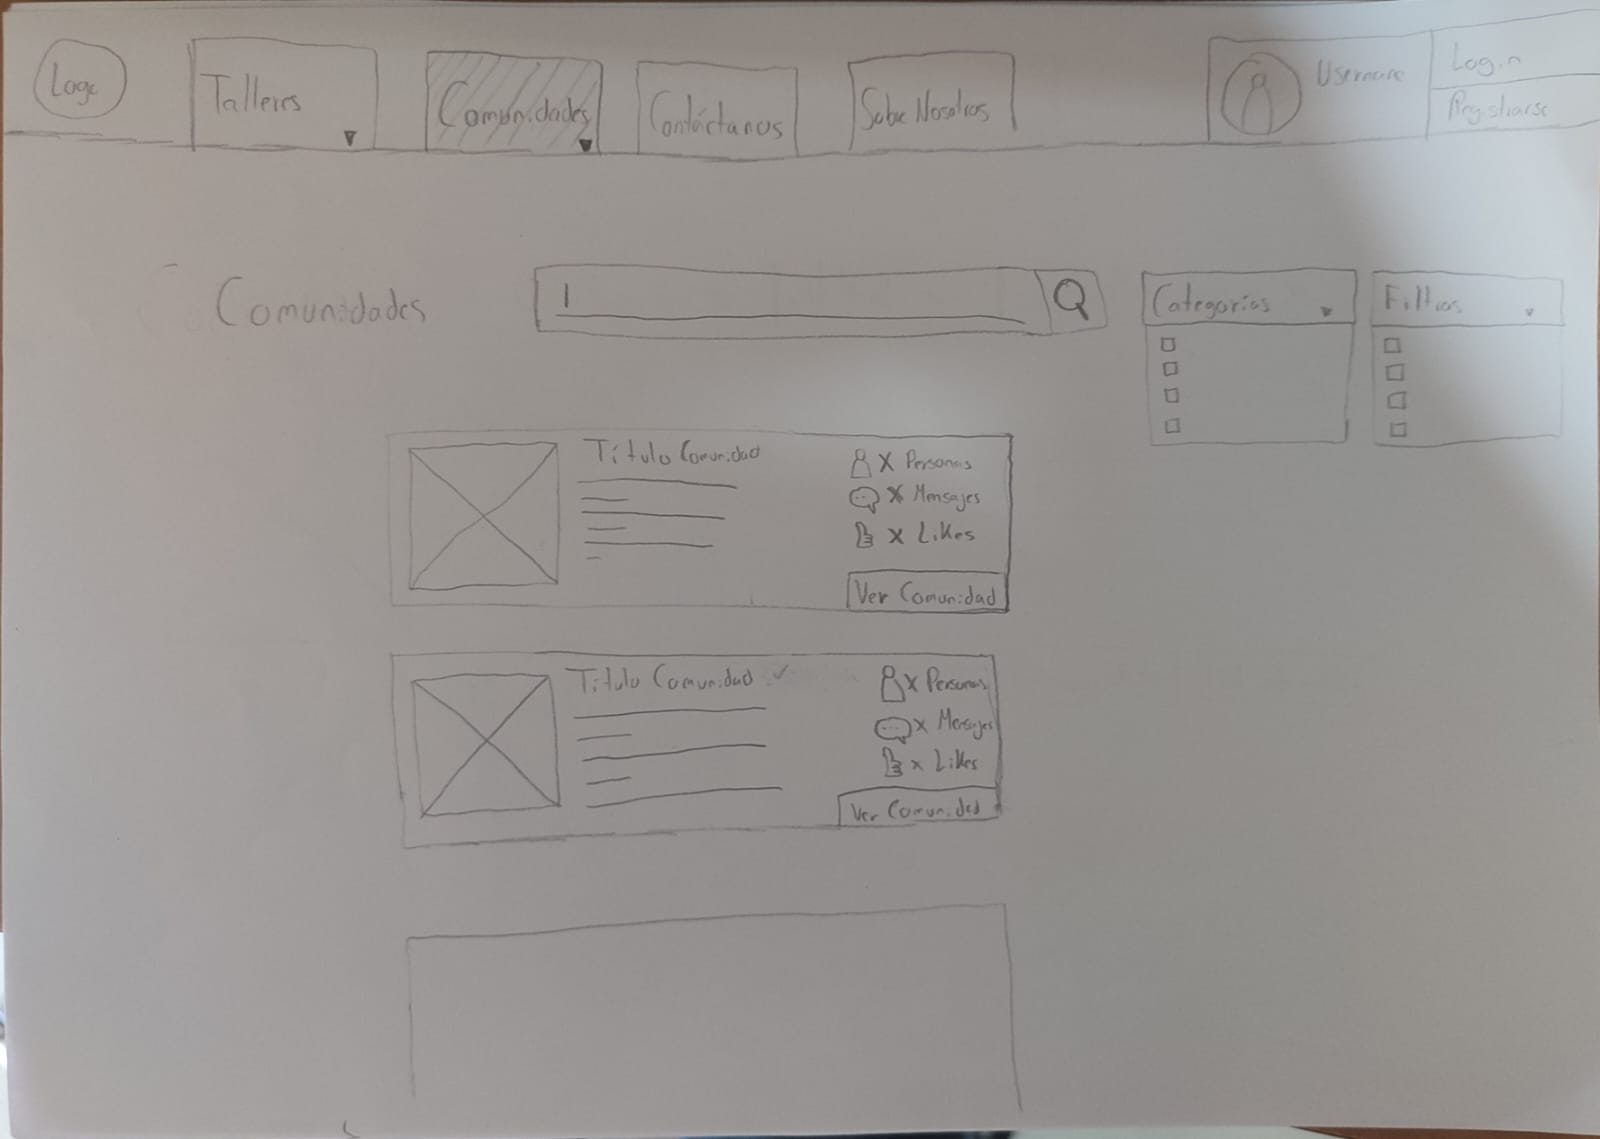 Logo
Talleres
Comunidades
Contáctanos
Sobre Nosotros
Username
Login
Registrarse
Comunidades
Categorias
Filtros
Título Comunidad
X Personas
X Mensajes
X Likes
Ver Comunidad
Título Comunidad
X Personas
X Mensajes
X Likes
Ver Comunidad